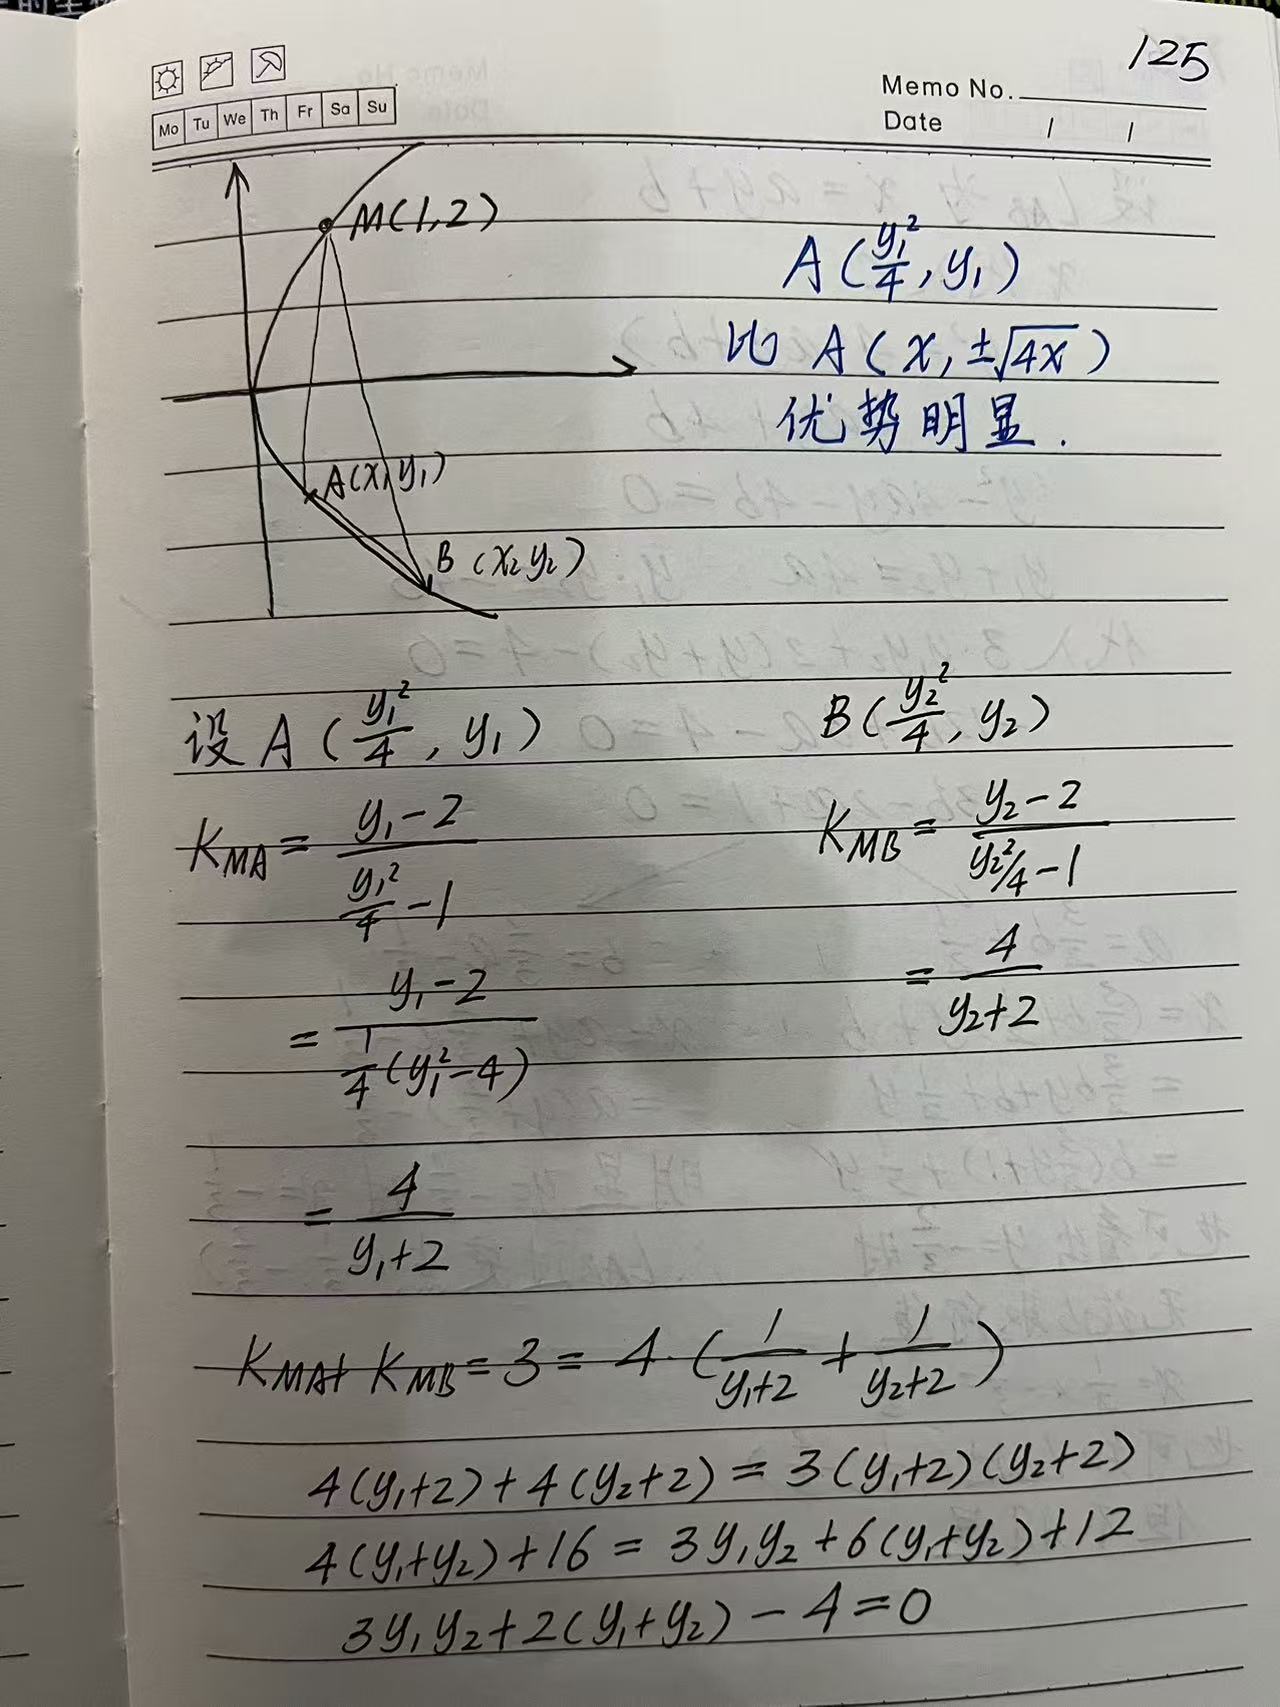 125
Memo No.
Mo Tu We Th Fr Sa Su
Date / /
M(1,2)
A(y₁²/4, y₁)
比 A(x, ±√4x)
优势明显.
A(x₁y₁)
B(x₂y₂)
设A(y₁²/4, y₁) B(y₂²/4, y₂)
K_MA = (y₁-2)/(y₁²/4 -1) K_MB = (y₂-2)/(y₂²/4 -1)
= (y₁-2)/(1/4(y₁²-4)) = 4/(y₂+2)
= 4/(y₁+2)
K_MA+ K_MB = 3 = 4·(1/(y₁+2) + 1/(y₂+2))
4(y₁+2)+4(y₂+2) = 3(y₁+2)(y₂+2)
4(y₁+y₂)+16 = 3y₁y₂+6(y₁+y₂)+12
3y₁y₂+2(y₁+y₂)-4=0